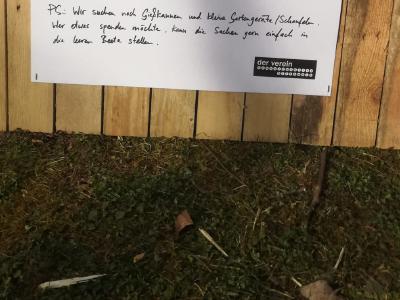 PS: Wir suchen noch Gießkannen und kleine Gartengeräte/Schaufeln.
Wer etwas spenden möchte, kann die Sachen gern einfach in
die leeren Beete stellen.
der verein